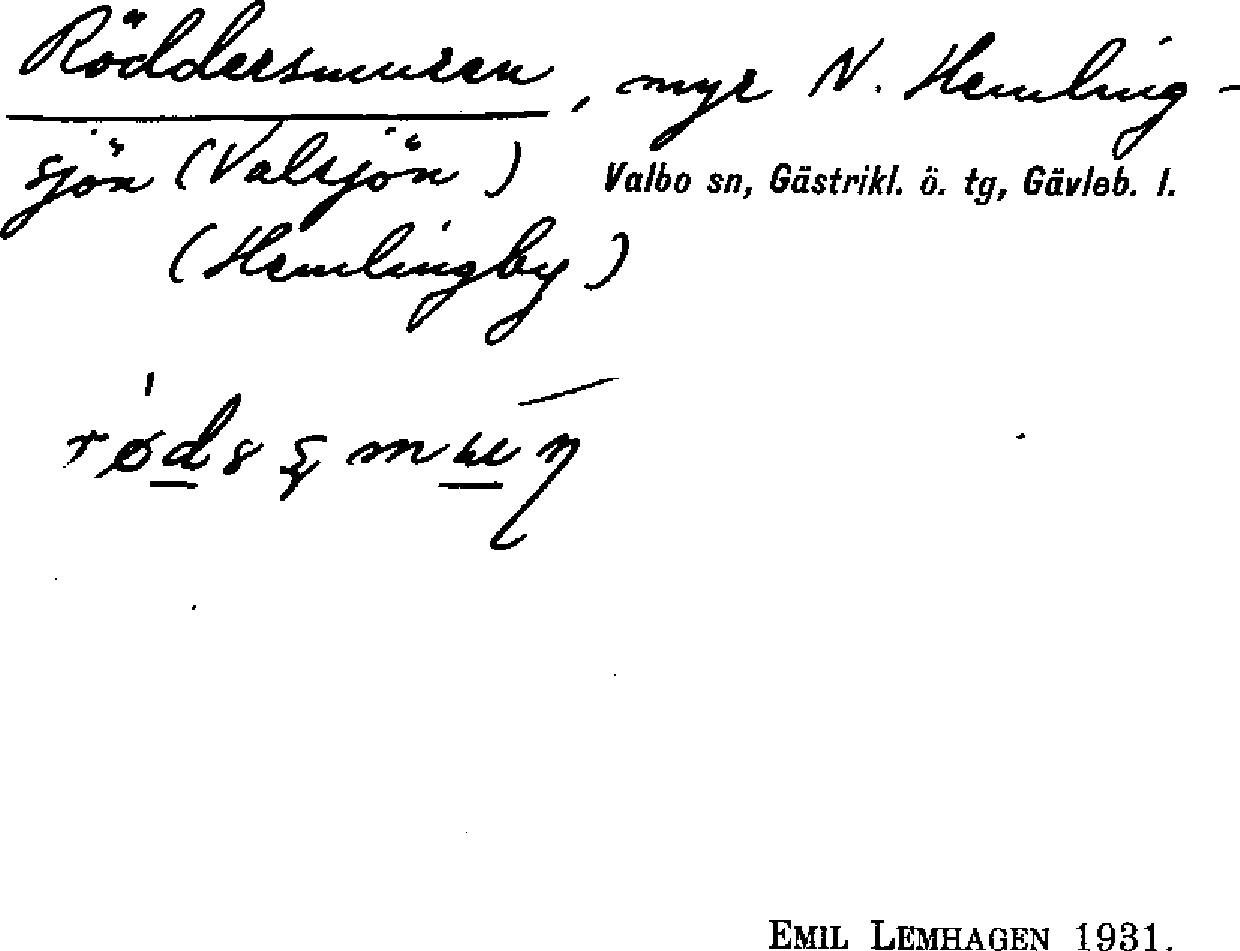 Röddersmuren, myr N. Hemling-
sjön (Valsjön) Valbo sn, Gästrikl. ö. tg, Gävleb. l.
(Hemlingby)
EMIL LEMHAGEN 1931.